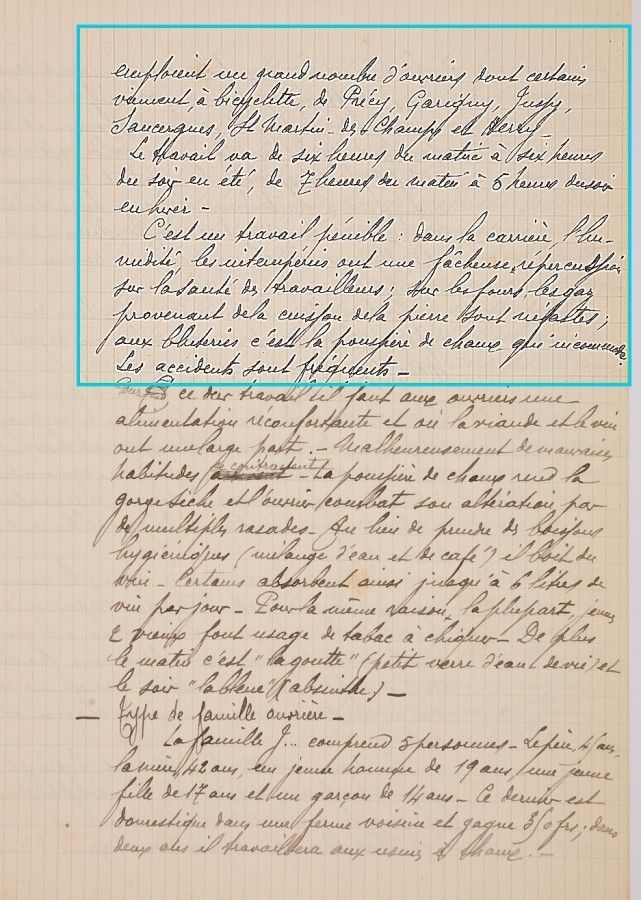 emploient un grand nombre d'ouvriers dont certains
viennent, à bicyclette, de Précy, Garigny, Jussy,
Sancergues, St Martin-des-Champs et Herry_
Le travail va de six heures du matin à six heures
du soir en été, de 7 heures du matin à 5 heures du soir
en hiver -
C'est un travail pénible : dans la carrière, l'hu-
midité les intempéries ont une fâcheuse répercussion
sur la santé des travailleurs ; sur les fours, les gaz
provenant de la cuisson de la pierre sont néfastes ;
aux bluteries c'est la poussière de chaux qui incommode.
Les accidents sont fréquents -
Pour ce dur travail il faut aux ouvriers une
alimentation réconfortante et où la viande et le vin
ont une large part. - Malheureusement de mauvaises
habitudes se contractent - La poussière de chaux rend la
gorge sèche et l'ouvrier combat son altération par
de multiples rasades - Au lieu de prendre des boissons
hygiéniques (mélange d'eau et de café) il boit du
vin - Certains absorbent ainsi jusqu'à 6 litres de
vin par jour - Pour la même raison, la plupart, jeunes
& vieux font usage de tabac à chiquer - De plus
le matin c'est "la goutte" (petit verre d'eau de vie) et
le soir "la bleue" (absinthe) -
- Type de famille ouvrière -
La famille J... comprend 5 personnes - Le père, ans,
la mère, 42 ans, un jeune homme de 19 ans, une jeune
fille de 17 ans et un garçon de 14 ans - Ce dernier est
domestique dans une ferme voisine et gagne 350 frs ; dans
deux ans il travaillera aux usines à chaux. -